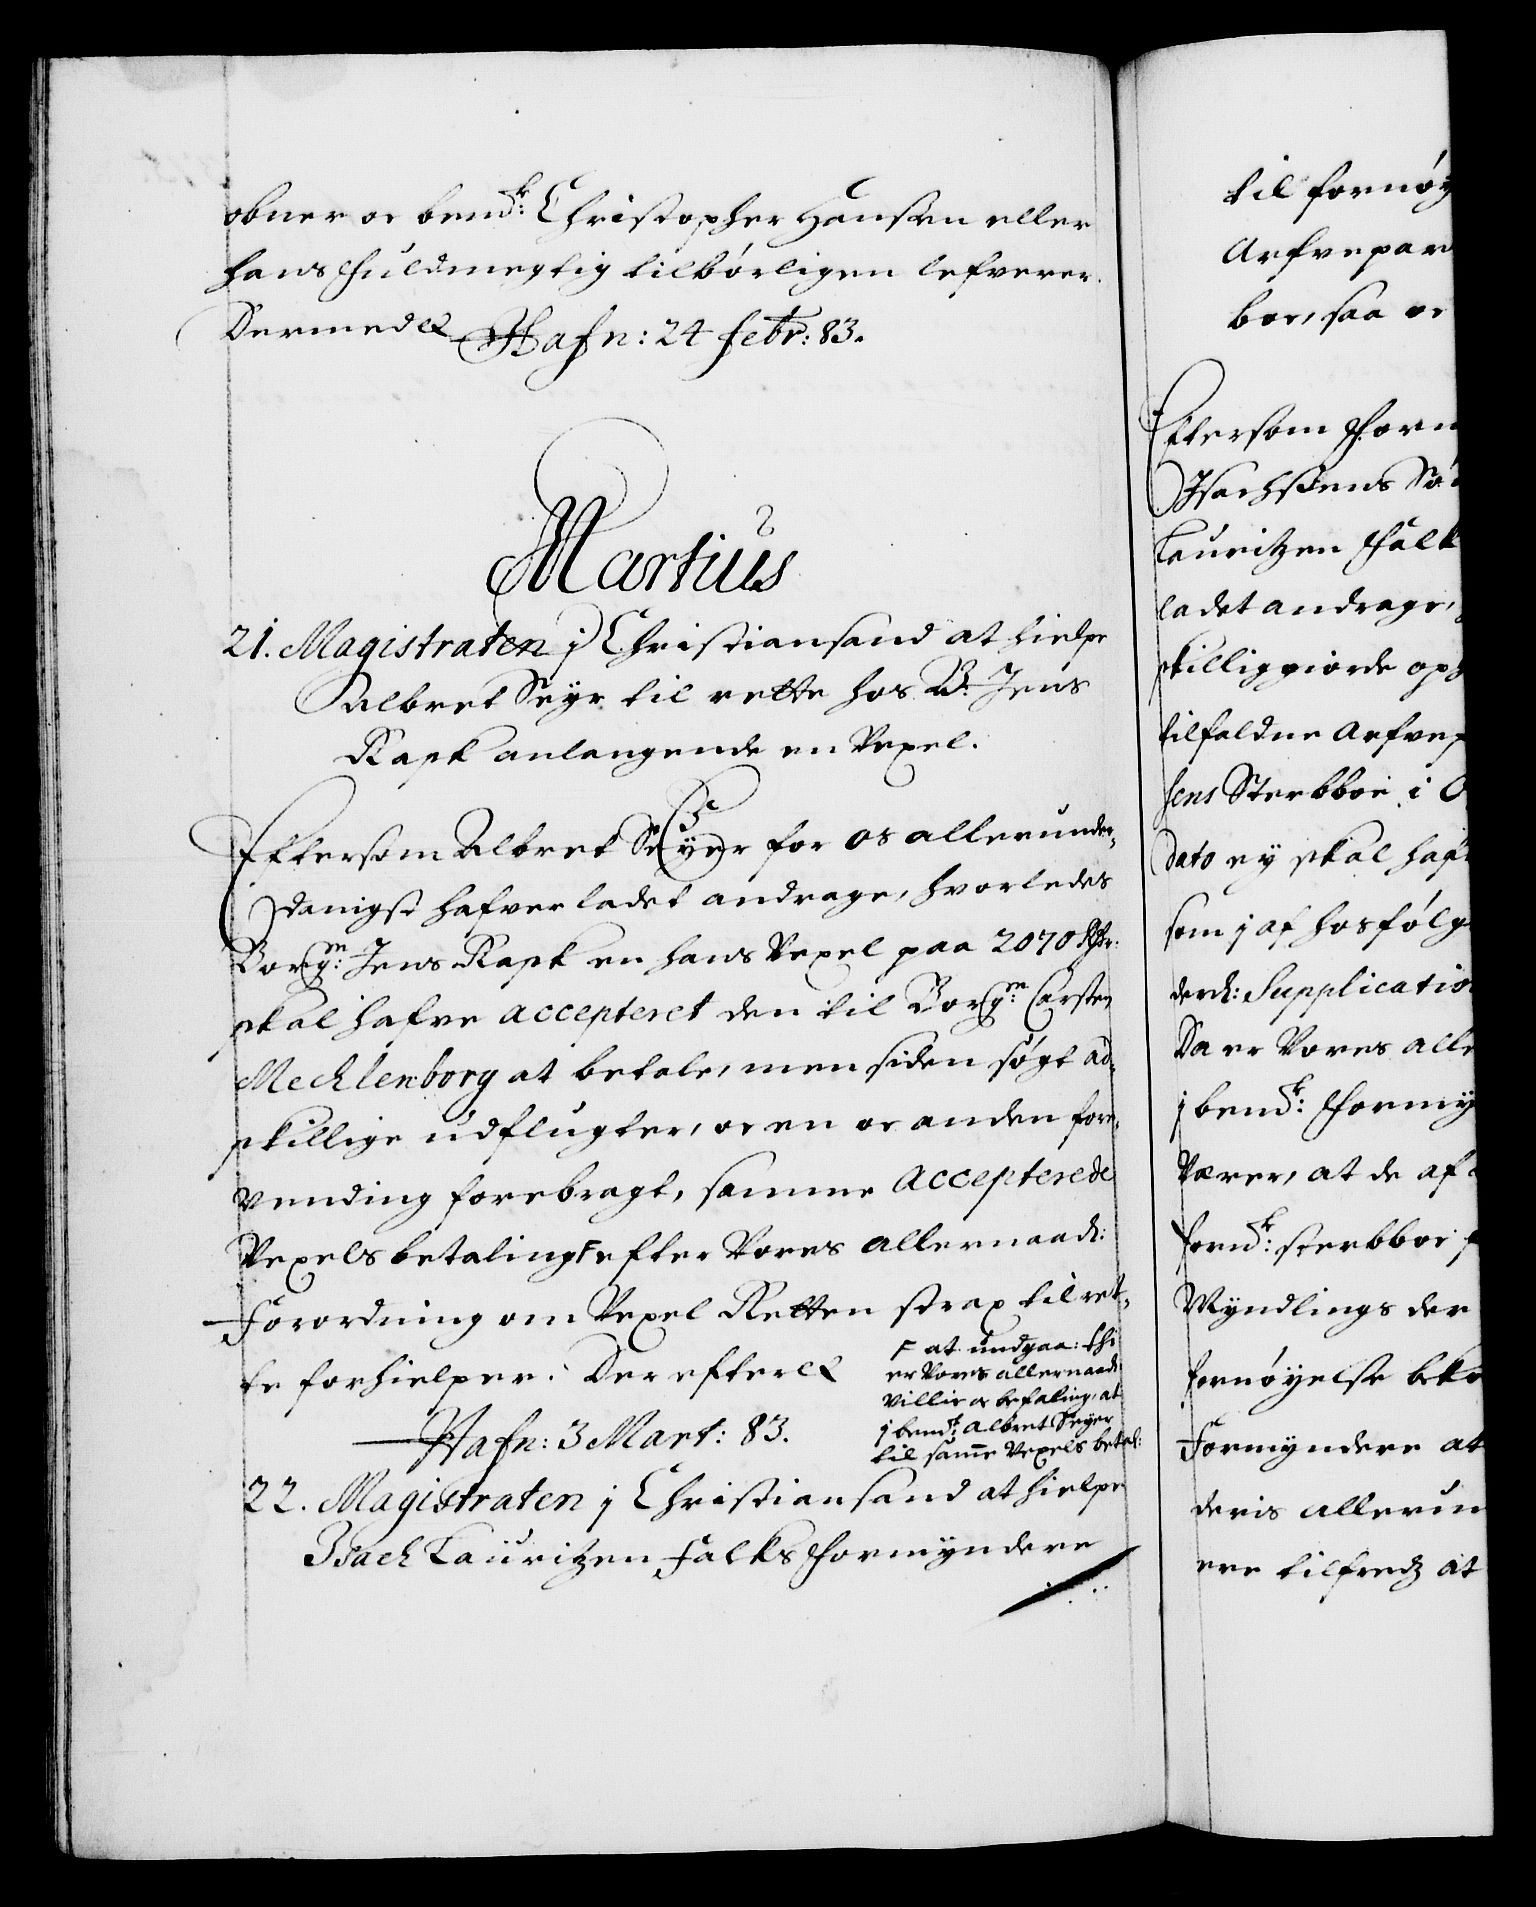 obner oc bemd.k: Christopher Hansen eller
hans fuldmegtig tilbørligen lefverer.
Dermed &c Hafn: 24 febr: 83.
Martius
21. Magistraten j Christiansand at hielpe
Albret Seyr til rette hos B. Jens
Rask anlangende en Vexel.
Eftersom Albret Seyer for os allerunder-
danigst hafver ladet andrage, hvorledes
Borg.m: Jens Rask en hans Vexel paa 2070 Rdr:
skal hafve accepteret den til Borg.m: Carsten
Mechlenborg at betale, men siden søgt ad-
skillige udflugter, oc en oc anden fore-
vending forebragt, samme accepterede
Vexels betaling F efter Vores allernaad:
Forordning om Vexel Retten strax til ret-
te forhielper. Der efter &c
F at undgaa: thi
er Vores allernaad:
villie oc befaling, at
j bemd.k: Albret Seyer
til same Vexels betal:
Hafn: 3 Mart: 83.
22. Magistraten j Christiansand at hielpe
Isach Lauritzen Falks formyndere
til fornøy
Arfvepar
boe, saa er
Eftersom form
Isachsens Sø
Lauritzen Falk
ladet andrage,
skilliggiorde op
tilfaldne Arfvep
sens Sterbboe i
dato ey skal haf
som j af hosfølg
derd: Supplicatio
Da er Vores alle
j bemd.k: formy
Verer, at de af
forn.k: sterbboe
Myndlings der
fornøyelse beko
Formyndere at
deris allerun
ere tilfredz at